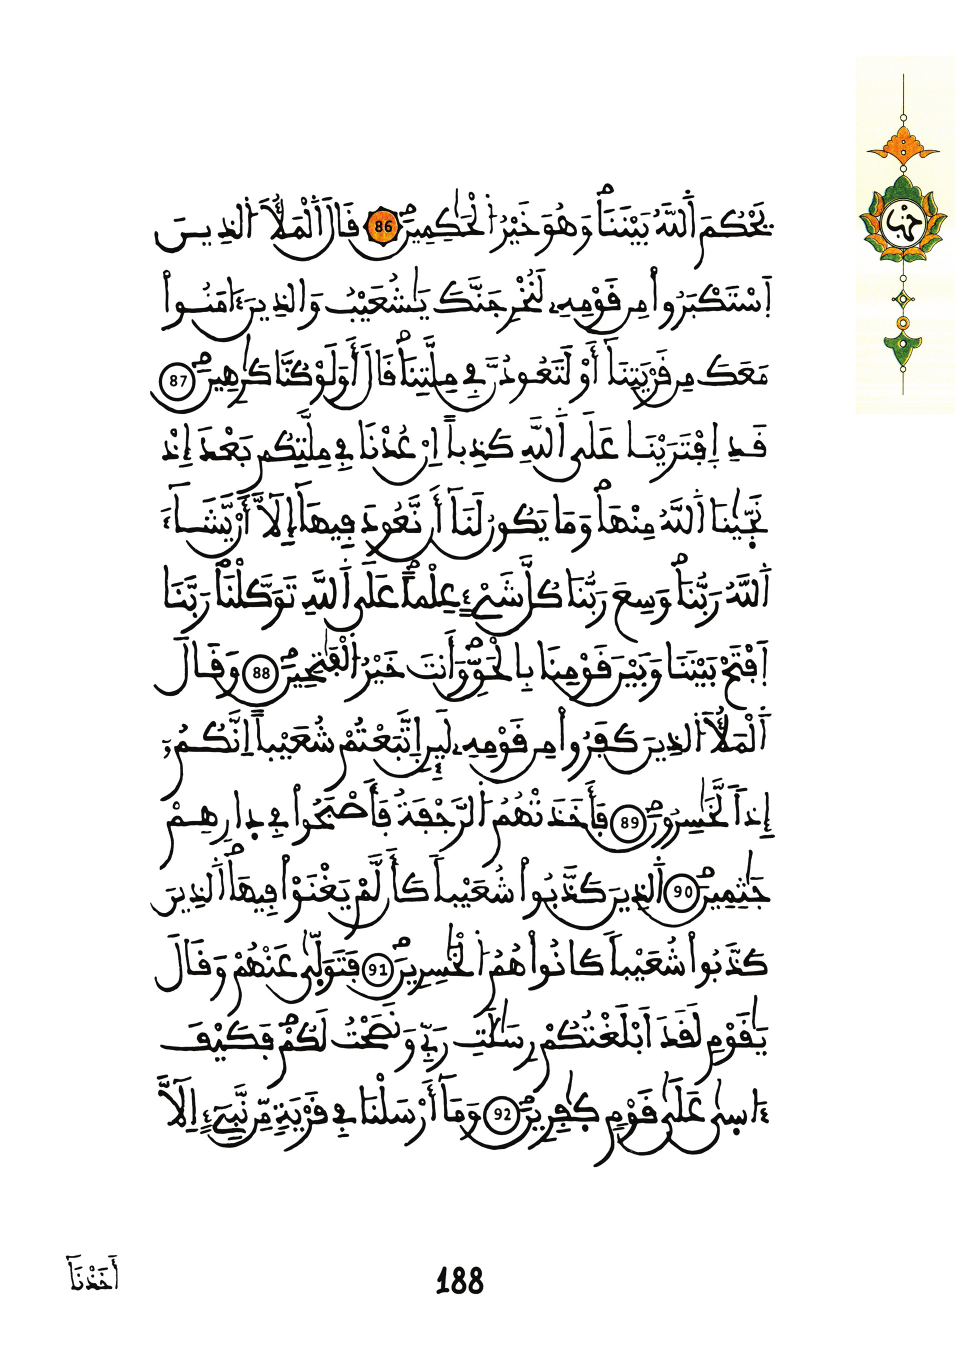 يَحْكُمَ اَ۬للَّهُ بَيْنَنَاۖ وَهُوَ خَيْرُ اُ۬لْحَٰكِمِينَۖ 86 قَالَ اَ۬لْمَلَأُ اُ۬لذِينَ
حزب
اَ۪سْتَكْبَرُواْ مِن قَوْمِهِۦ لَنُخْرِجَنَّكَ يَٰشُعَيْبُ وَالذِينَ ءَامَنُواْ
مَعَكَ مِن قَرْيَتِنَآ أَوْ لَتَعُودُنَّ فِے مِلَّتِنَاۖ قَالَ أَوَلَوْ كُنَّا كَٰرِهِينَۖ 87
قَدِ اِ۪فْتَرَيْنَا عَلَى اَ۬للَّهِ كَذِباً اِنْ عُدْنَا فِے مِلَّتِكُم بَعْدَ إِذْ
نَجَّيٰنَا اَ۬للَّهُ مِنْهَاۖ وَمَا يَكُونُ لَنَآ أَن نَّعُودَ فِيهَآ إِلَّآ أَنْ يَّشَآءَ
اَ۬للَّهُ رَبُّنَاۖ وَسِعَ رَبُّنَا كُلَّ شَےْءٍ عِلْماًۖ عَلَى اَ۬للَّهِ تَوَكَّلْنَاۖ رَبَّنَا
اَ۪فْتَحْ بَيْنَنَا وَبَيْنَ قَوْمِنَا بِالْحَقِّۖ وَأَنتَ خَيْرُ اُ۬لْفَٰتِحِينَۖ 88 وَقَالَ
اَ۬لْمَلَأُ اُ۬لذِينَ كَفَرُواْ مِن قَوْمِهِۦ لَئِنِ اِ۪تَّبَعْتُمْ شُعَيْباً اِنَّكُمُۥٓ
إِذاً لَّخَٰسِرُونَۖ 89 فَأَخَذَتْهُمُ اُ۬لرَّجْفَةُ فَأَصْبَحُواْ فِے دِارِهِمْ
جَٰثِمِينَۖ 90 اَ۬لذِينَ كَذَّبُواْ شُعَيْباً كَأَن لَّمْ يَغْنَوْاْ فِيهَاۖ اَ۬لذِينَ
كَذَّبُواْ شُعَيْباً كَانُواْ هُمُ اُ۬لْخَٰسِرِينَۖ 91 فَتَوَلّ۪يٰ عَنْهُمْ وَقَالَ
يَٰقَوْمِ لَقَدَ اَبْلَغْتُكُمْ رِسَٰلَٰتِ رَبِّے وَنَصَحْتُ لَكُمْۖ فَكَيْفَ
ءَاس۪يٰ عَلَيٰ قَوْمٖ كٰ۪فِرِينَۖ 92 وَمَآ أَرْسَلْنَا فِے قَرْيَةٖ مِّن نَّبِےٓءٍ اِلَّآ
أَخَذْنَآ
188